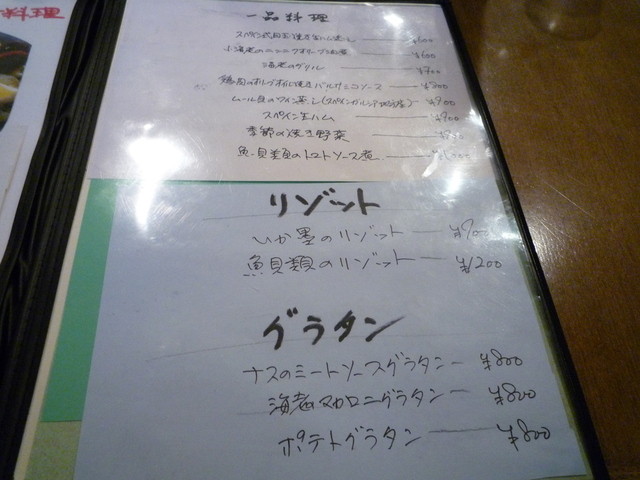 料理
一品料理
小海老のニンニクオリーブ油煮 ¥600
海老のグリル ¥700
鶏肉のオリーブオイル焼きバルサミコソース
ムール貝のワイン蒸し(スペインガルシア地方産) ¥900
スペイン生ハム ¥900
季節の焼き野菜
魚貝類のトマトソース煮
リゾット
いか墨のリゾット ¥900
魚貝類のリゾット ¥1200
グラタン
ナスのミートソースグラタン ¥800
海老のマカロニグラタン ¥800
ポテトグラタン ¥800